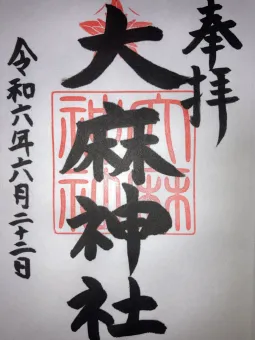 奉拝
大麻神社
令和六年六月二十二日